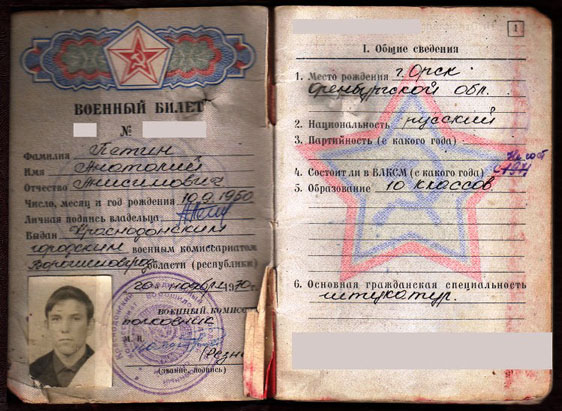 ВОЕННЫЙ БИЛЕТ
№
Фамилия Петин
Имя Анатолий
Отчество Анисимович
Число, месяц и год рождения 10.9.1950
Личная подпись владельца
Выдан Краснодонским
городским военным комиссариатом
Ворошиловград. области (республики)
20 ноября 1970 г.
Военный комисс
полковник
М. П.
(звание, подпись)
1
I. Общие сведения
1. Место рождения г. Орск
Оренбургской обл.
2. Национальность русский
3. Партийность (с какого года)
4. Состоит ли в ВЛКСМ (с какого года)
5. Образование 10 классов
6. Основная гражданская специальность
штукатур.